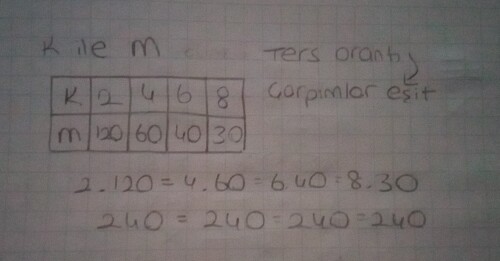 K ile m Ters orantı
Çarpımlar eşit
K 2 4 6 8
m 120 60 40 30
2.120 = 4.60 = 6.40 = 8.30
240 = 240 = 240 = 240